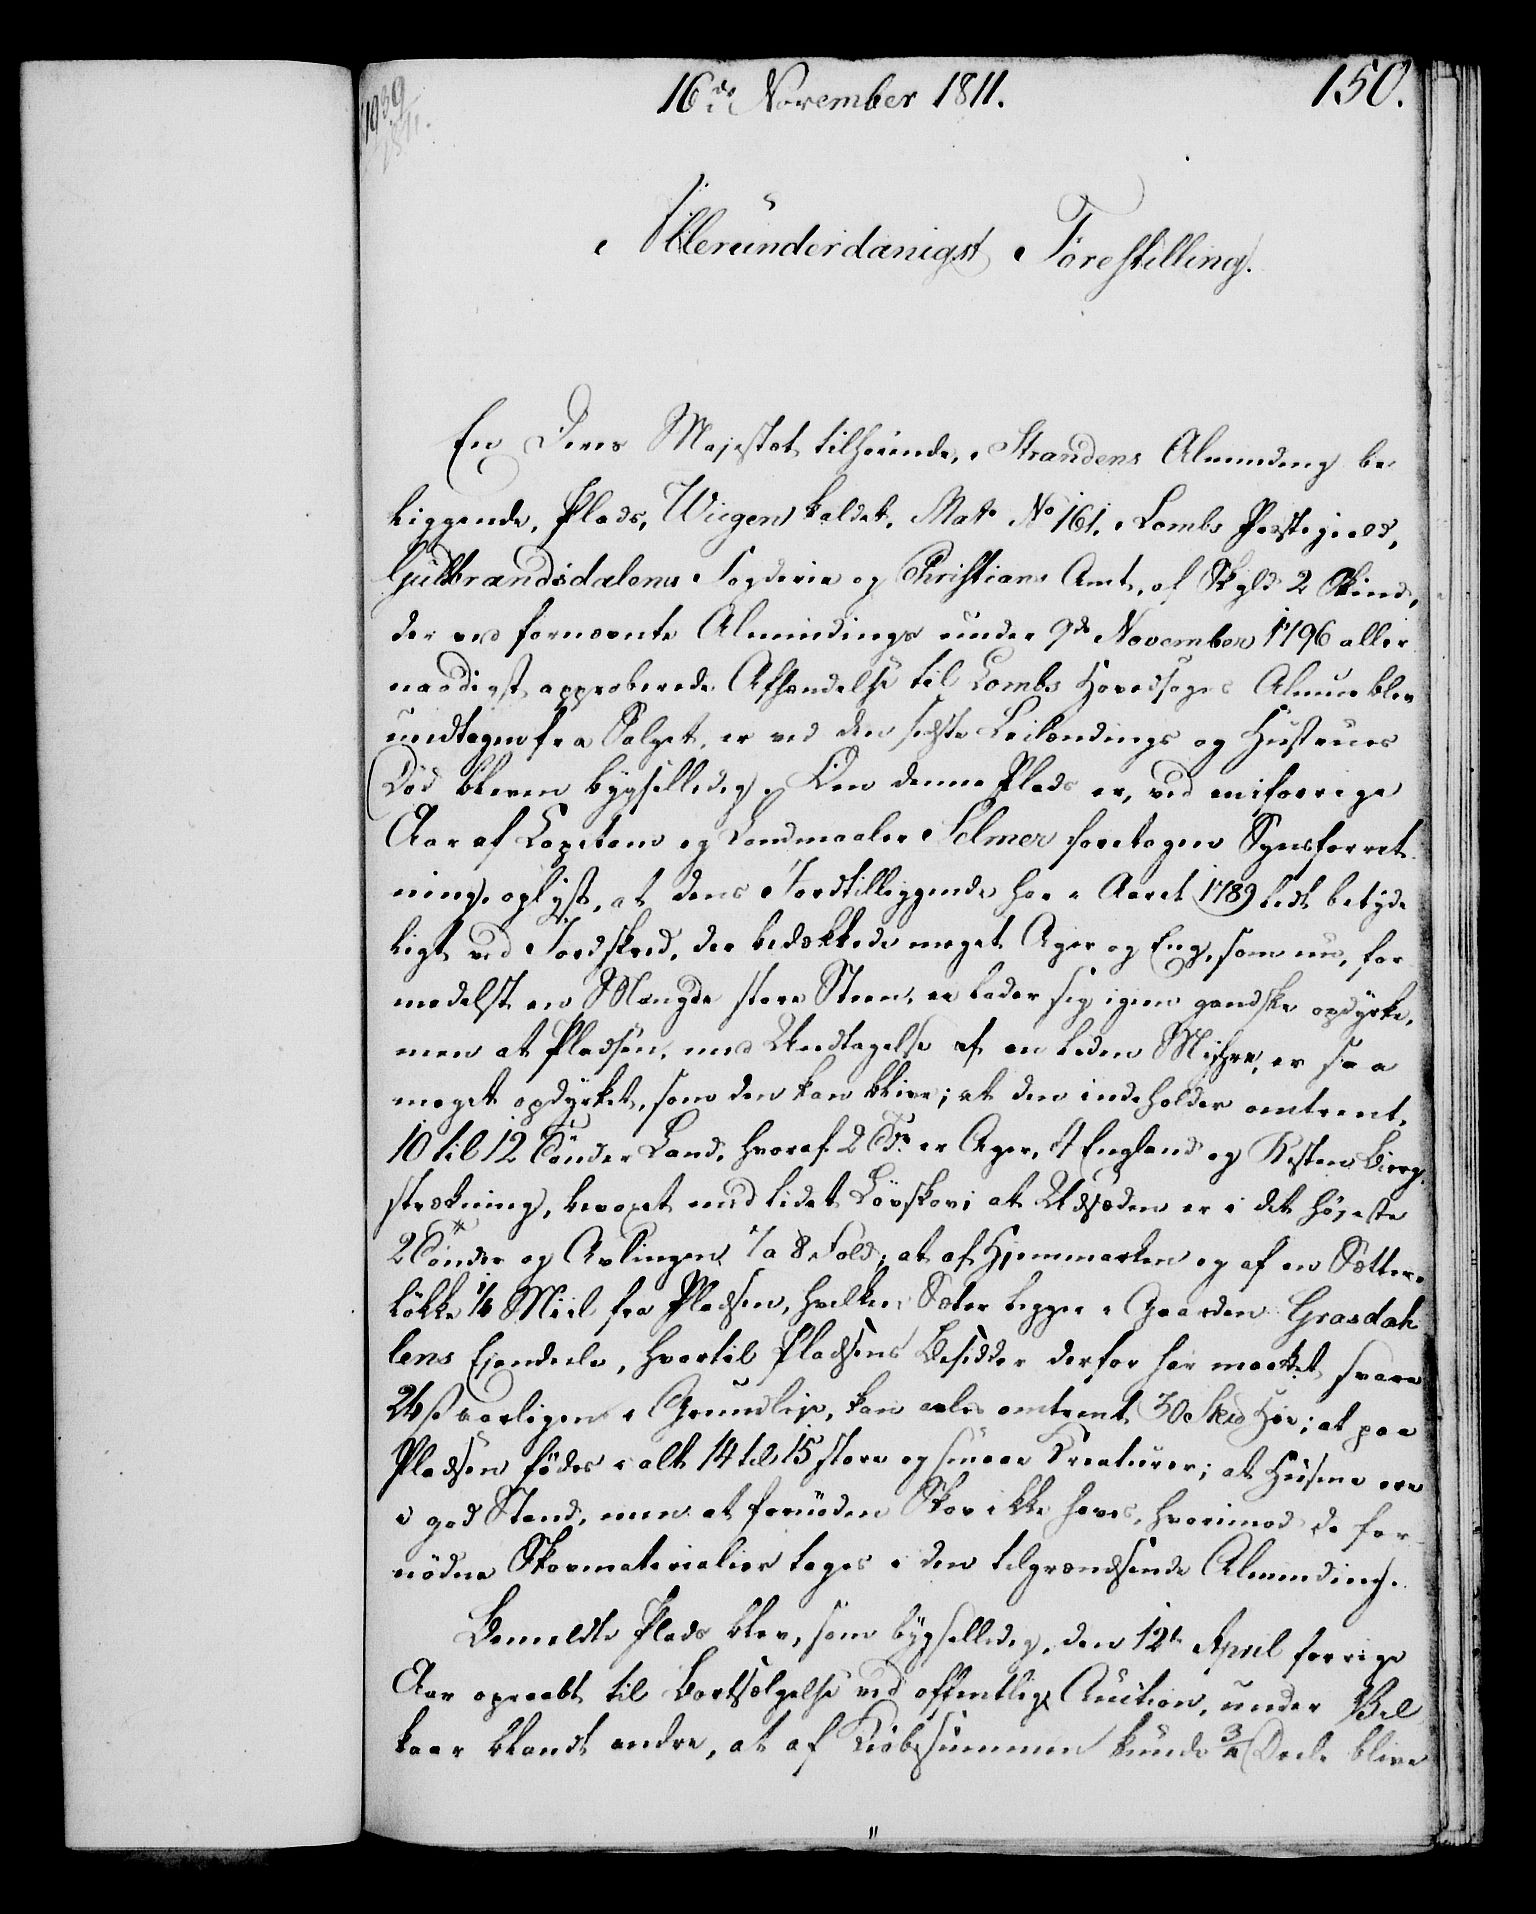 1939
1811.
16de November 1811.
150.
Allerunderdanigst Forestilling.
En Deres Majestæt tilhørende, i Strandens Alminding be
liggende, Plads, Wiigen kaldet, Matr. No 161. i Lombs Præstegield,
Guldbrandsdalens Fogderie og Christians Amt, af Skyld 2 Skind,
der ved fornævnte Almindings under 9de November 1796 aller
naadigst approberede Afhændelse til Lombs Hovedsogns Almue blev
undtagen fra Salget, er ved den sidste Leilændings og Hustrues
Død bleven bygselledig. Om denne Plads er, ved en i forrige
Aar af Capitain og Landmaaler Selmer foretagen Synsforret
ning, oplyst, at dens Jordtilliggende har i Aaret 1789 lidt betyde
ligt ved Jordskred, der bedækkede meget Ager og Eng, som nu, for
medelst en Mængde store Steen, ei lader sig igien gandske opdyrke,
men at Pladsen, med Undtagelse af en liden Myhr, er saa
meget opdyrket, som den kan blive; at den indeholder omtrent
10 til 12 Tönder Land, hvoraf 2 Tdr er Ager, 4 England og Resten Bierg
strækning, bevoxet med lidet Lövskov; at Udsæden er i det høieste
2 Tönder og Avlingen 7 a 8 Fold; at af Hjemmarken og af en Sætter
løkke 1/4 Miil fra Pladsen, hvilken Sæter ligger i Gaarden Grasdah
lens Ejendeele, hvortil Pladsens Besidder derfor har maattet svare
24 s aarligen i Grundleje, kan avles omtrent 30 Læs Høe; at paa
Pladsen födes i alt 14 til 15 store og smaae Kreaturer; at Husene ere
i god Stand, men at fornöden Skov ikke haves, hvorimod de for
nödne Skovmaterialier tages i den tilgrændsende Alminding.
Bemeldte Plads blev, som bygselledig, den 12te April forrige
Aar opraabt til Bortsælgelse ved offentlig Auction, under Vil
kaar blandt andre, at af Kiöbesummen kunde 3/4 Deele blive